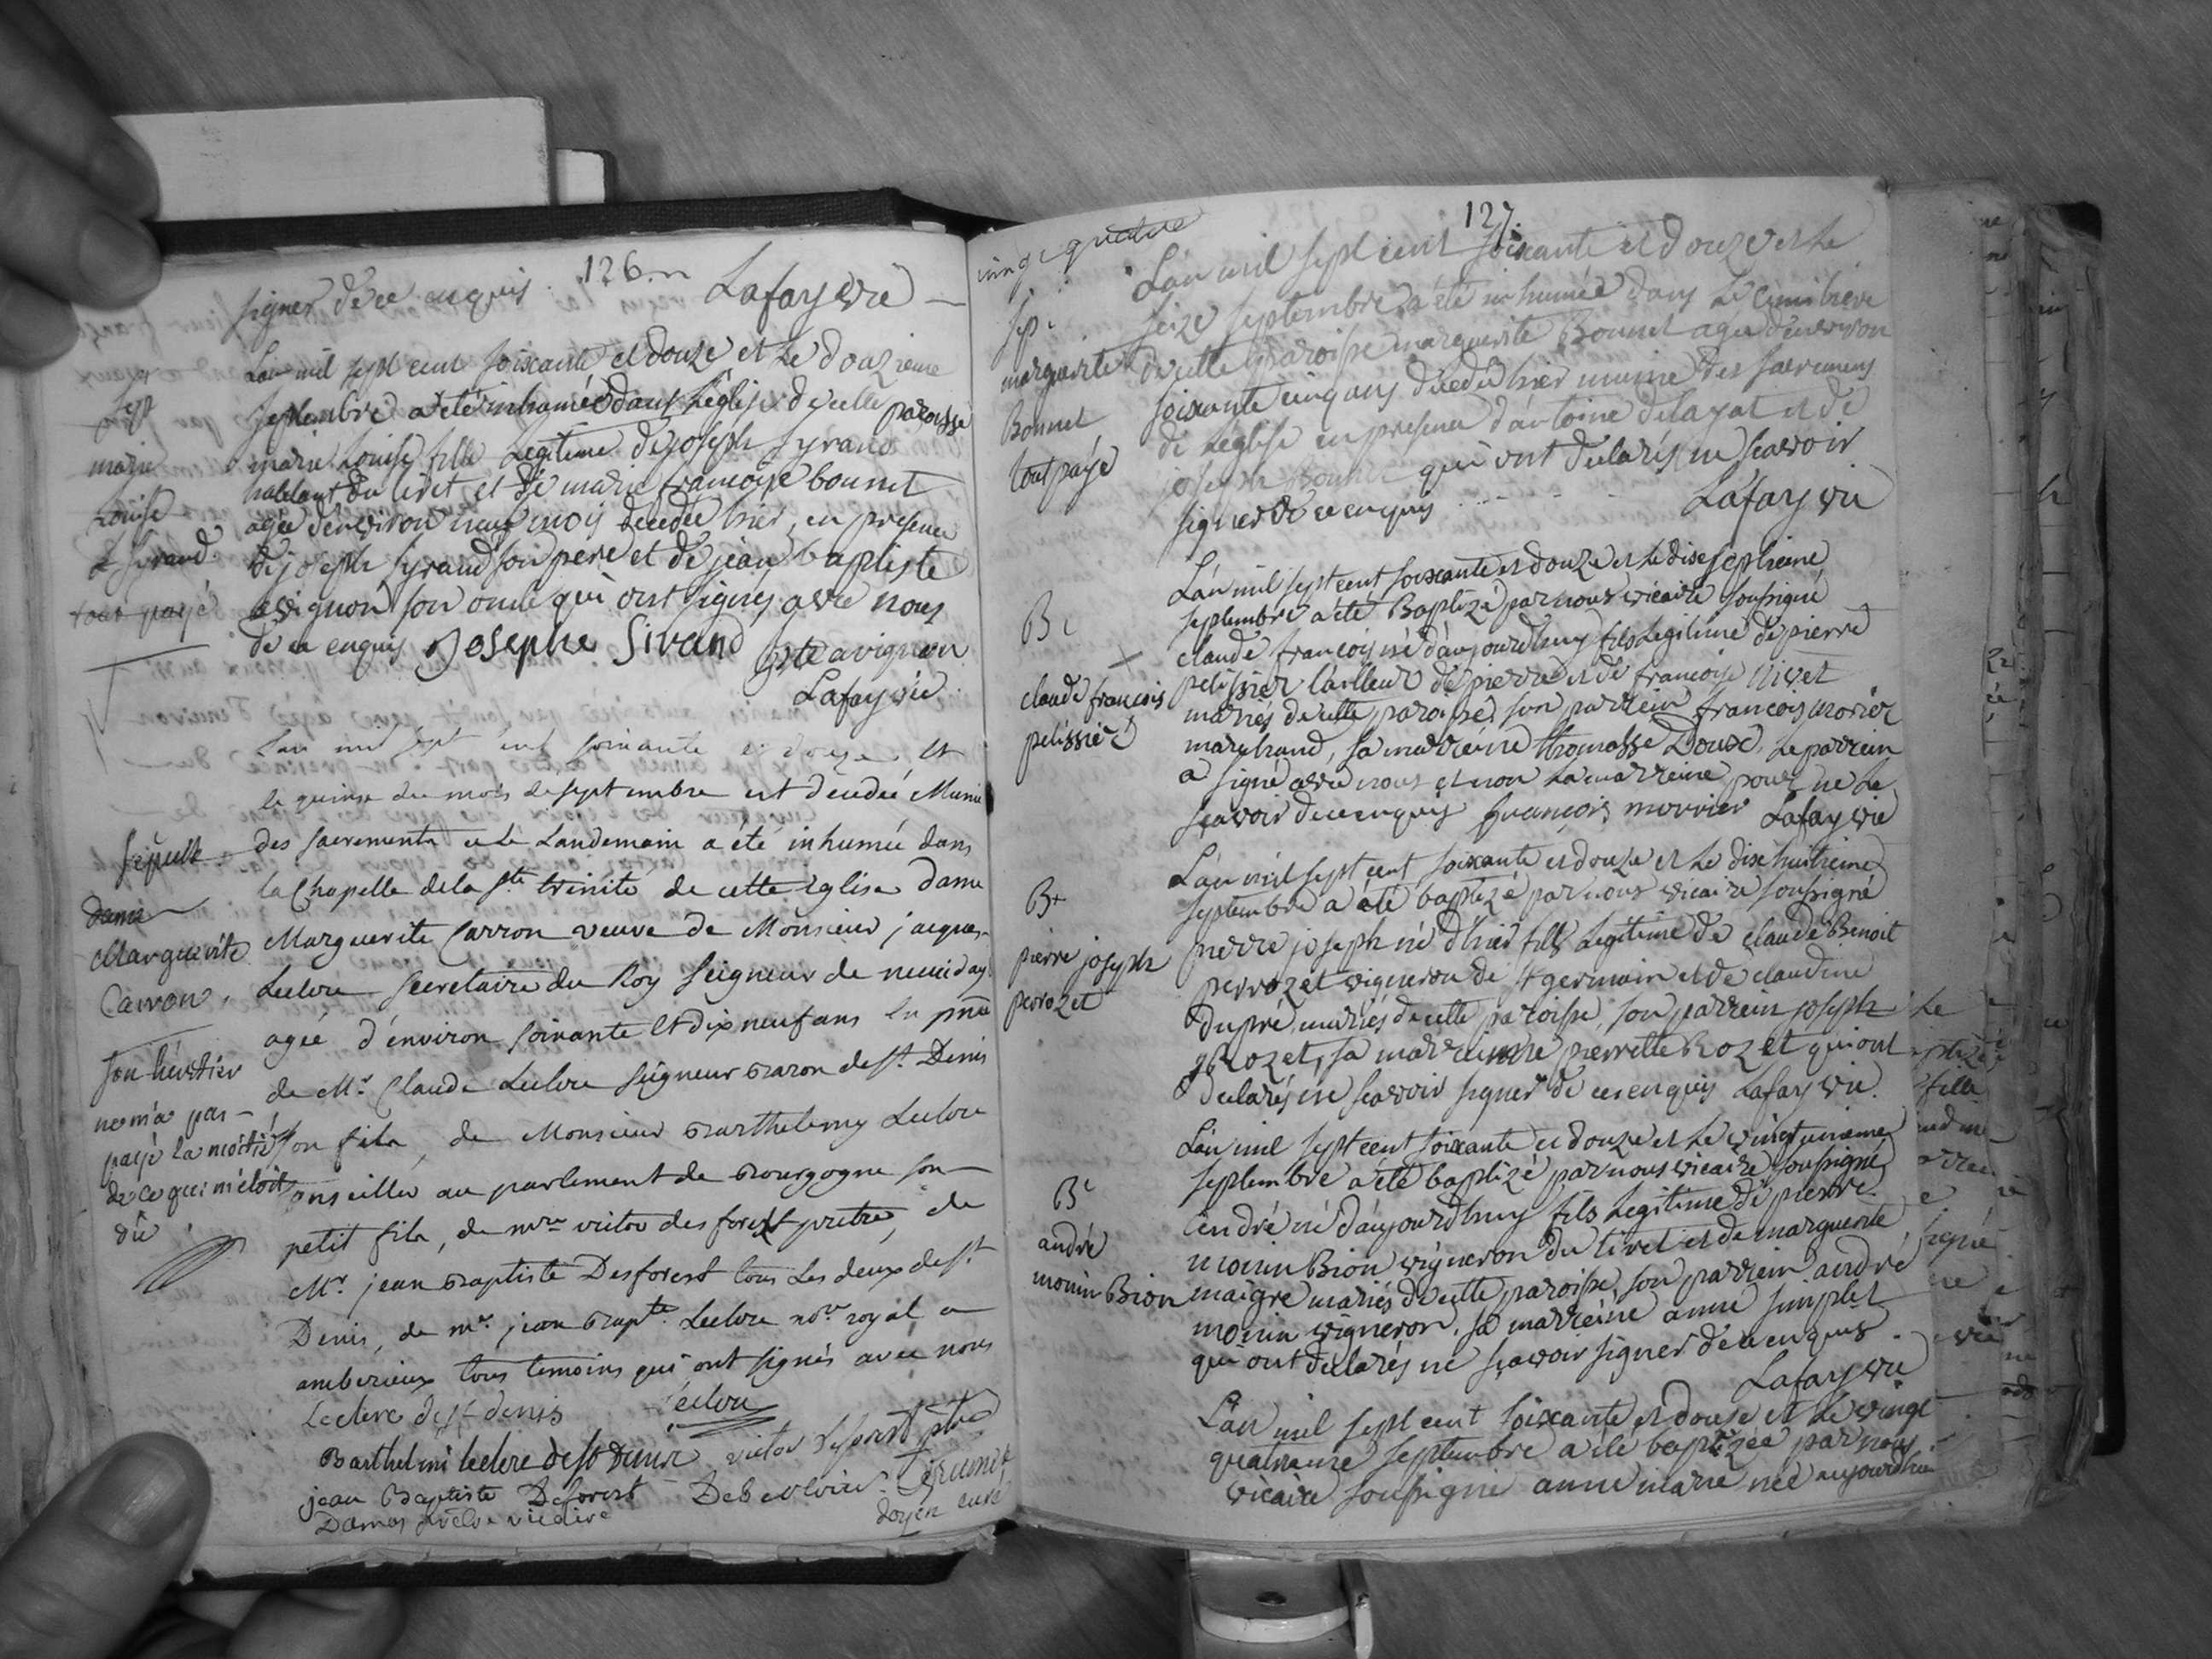 126.
signer de ce enquis. Lafay vic
L'an mil sept cent soixante et douze et le douzieme
septembre a été inhumée dans l'église de cette paroisse
marie Louise fille Legitime de joseph Syrand
habitant du tiret et de marie françoise bonnet
agée d'environ neuf mois decedée hier, en presence
de joseph Syrand son pere et de jean baptiste
avignon son oncle qui ont signés avec nous
de ce enquis Josephe Sirand Bte avignon
Lafay vic
Sep
marie
Louise
Syrand
tout payé
L'an mil sept cent soixante et douze, et
le quinze du mois de septembre est décédée Munie
des sacrements et le Landemain a été inhumée dans
la Chapelle de la Ste trinité de cette Eglise dame
Marguerite Carron veuve de Monsieur jacques
Leclerc Secretaire du Roy Seigneur de
agée d'environ soixante et dix neuf ans En pnce
de Mr. Claude Leclerc Seigneur Baron de St. Denis
son fils, de Monsieur Barthelemy Leclerc
Conseiller au parlement de Bourgogne son
petit fils, de mre victor des forest pretre, de
Mr. jean Baptiste Desforest tous Les deux de St.
Denis, de mr. jean Bapte. Leclerc nore royal a
amberieux tous temoins qui ont signés avec nous
Leclerc de St denis Leclerc
Barthelmi leclerc de St Denis victor desforest ptre
jean Baptiste Deforest
Damas vicaire doyen curé
Sepult
dame
Marguerite
Carron.
son héritier
ne m'a pas
payé la moitié
de ce qui m'étoit
dû
127.
quatre
L'an mil sept cent soixante et douze et le
seize septembre a été inhumée dans le cimitiere
de cette paroisse marguerite Bonnet agée d'environ
soixante cinq ans decedée hier munie des sacremens
de l'église en presence d'antoine delayat et de
joseph Bonnet qui ont declarés ne scavoir
signer de ce enquis
Lafay vic
Sep
marguerite
Bonnet
tout payé
L'an mil sept cent soixante et douze et le dixseptieme
septembre a été Baptizé par nous vicaire soussigné
claude françois né d'aujourdhuy fils Legitime de pierre
pelissier tailleur de pierre et de françoise Nivet
mariés de cette paroisse, son parrein françois morier
marchand, sa marreine thomasse Doux, le parrein
a signé avec nous et non la marreine pour ne le
scavoir de ce enquis françois morrier Lafay vic
B
claude françois
pelissier
L'an mil sept cent soixante et douze et le dixhuitieme
septembre a été baptizé par nous vicaire soussigné
pierre joseph né d'hier fils Legitime de claude Benoit
perrozet vigneron de St germain et de claudine
dupré mariés de cette paroisse, son parrein joseph
Rozet, sa marreine pierrette Rozet qui ont
declarés ne scavoir signer de ce enquis Lafay vic.
B
pierre joseph
perrozet
L'an mil sept cent soixante et douze et le vingtunieme
septembre a été baptizé par nous vicaire soussigné
andré né d'aujourdhuy fils Legitime de pierre
monin Bion vigneron du tiret et de marguerite
maigre mariés de cette paroisse, son parrein andré
monin vigneron, sa marreine anne simplet
qui ont declarés ne scavoir signer de ce enquis.
Lafay vic
B
andré
monin Bion
L'an mil sept cent soixante et douze et le vingt
quatrieme septembre a été baptizée par nous
vicaire soussigné anne marie née aujourdhui